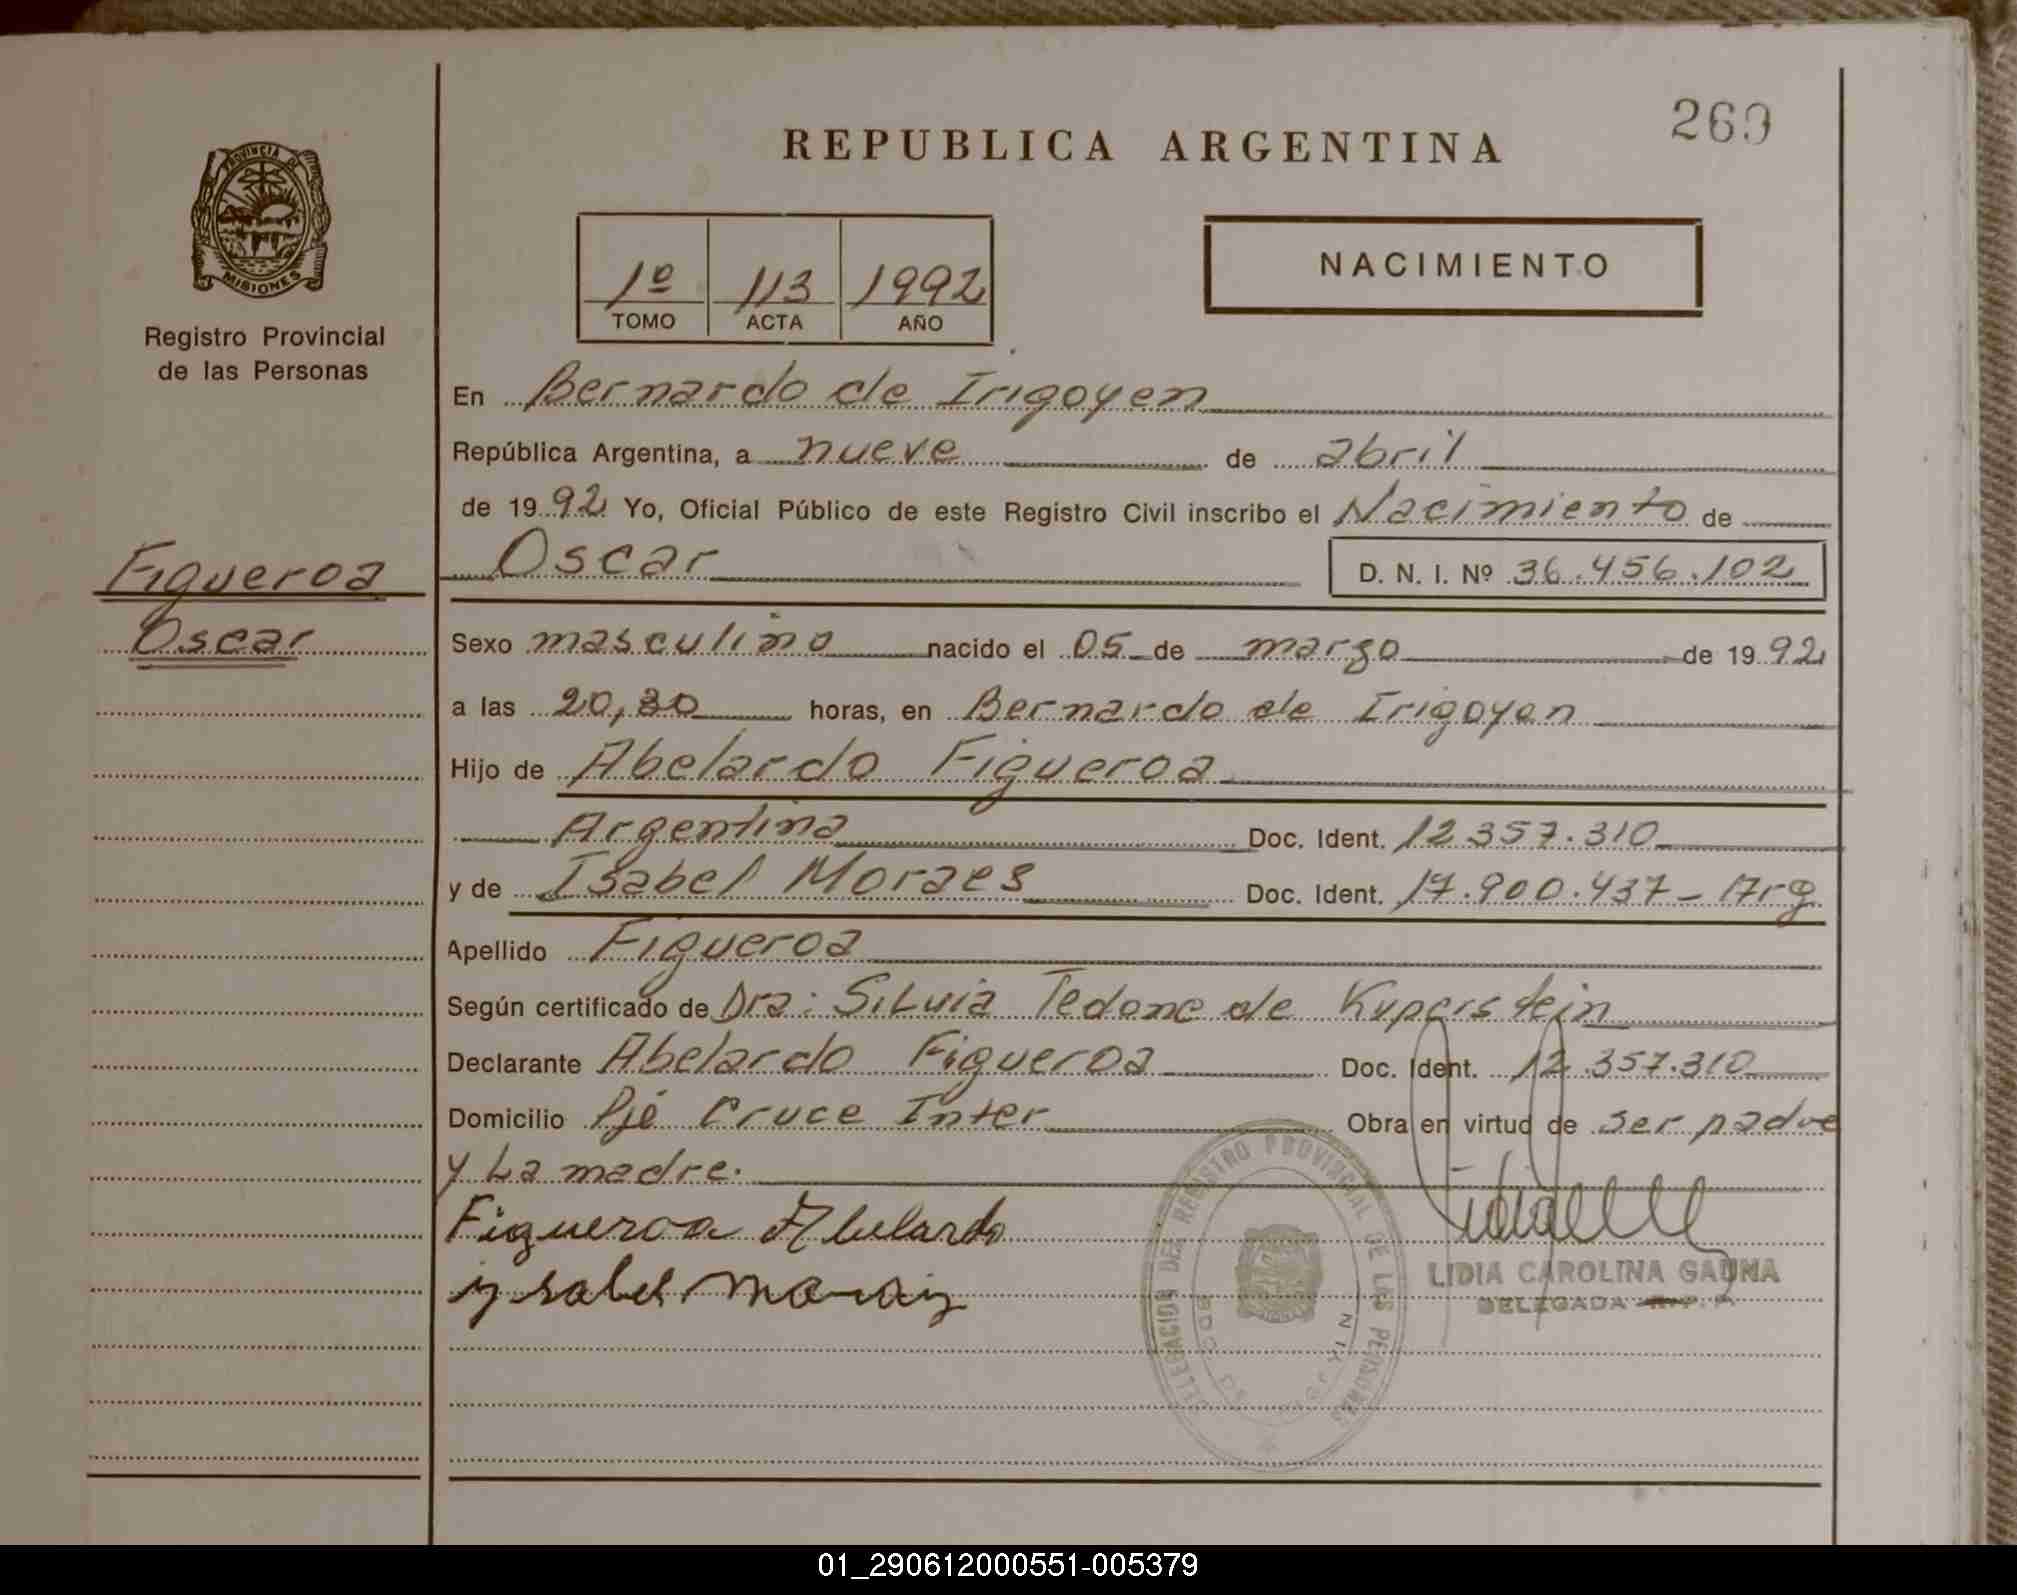 269
REPUBLICA ARGENTINA
PROVINCIA DE
MISIONES
Registro Provincial
de las Personas
1º 113 1992
TOMO ACTA AÑO
NACIMIENTO
En Bernardo de Irigoyen
República Argentina, a nueve de abril
de 1992 Yo, Oficial Público de este Registro Civil inscribo el Nacimiento de
Figueroa
Oscar
Oscar D. N. I. Nº 36.456.102
Sexo masculino nacido el 05 de marzo de 1992
a las 20,30 horas, en Bernardo de Irigoyen
Hijo de Abelardo Figueroa
Argentina Doc. Ident. 12.357.310
y de Isabel Moraes Doc. Ident. 17.900.437 - Arg
Apellido Figueroa
Según certificado de Dra: Silvia Tedone de Kuperstein
Declarante Abelardo Figueroa Doc. Ident. 12.357.310
Domicilio Pje Cruce Inter Obra en virtud de ser padre
y La madre.
Figueroa Abelardo
ysabel
DELEGACION DEL REGISTRO PROVINCIAL DE LAS PERSONAS
LIDIA CAROLINA GAUNA
DELEGADA R. P. P.
01_290612000551-005379